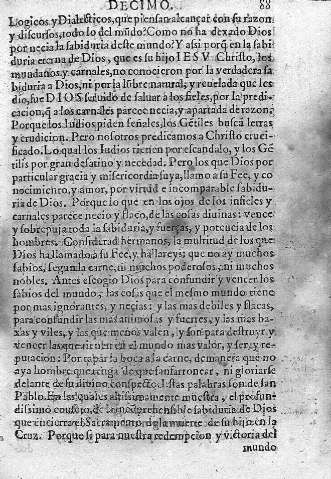 DECIMO. 88
Logicos y Dialecticos, que piensan alcançar con su razon
y discursos, todo lo del mūdo? Como no ha dexado Dios
por necia la sabiduria deste mundo? Y assi porq̄ en la sabi
duria eterna de Dios, que es su hijo IESV Christo, los
mundanos y carnales, no conocieron por la verdadera sa
biduria a Dios, ni por la libre natural, y reuelada que les
dio, fue DIOS seruido de saluar a los fieles, por la predi
cacion, q̄ a los carnales parece necia, y apartada de razon;
Porque los Iudios piden señales, los Gētiles buscā letras
y erudicion. Pero nosotros predicamos a Christo cruci-
ficado. Lo qual los Iudios tienen por escandalo, y los Gē
tiles por gran desatino y necedad. Pero los que Dios por
particular gracia y misericordia suya, llamo a su Fee, y co
nocimiēto, y amor, por virtud e incomparable sabidu-
ria de Dios. Porque lo que en los ojos de los infieles y
carnales parece necio y flaco, de las cosas diuinas: vence
y sobrepuja toda la sabiduria, y fuerças, y potencia de los
hombres. Considerad hermanos, la multitud de los que
Dios ha llamado a su Fee, y hallareys: que no ay muchos
sabios, segun la carne, ni muchos poderosos, ni muchos
nobles. Antes escogio Dios para confundir y vencer los
sabios del mundo, las cosas que el mesmo mundo tiene
por mas ignorantes, y necias: y las mas debiles y flacas,
para confundir las mas animosas y fuertes, y las mas ba-
xas y viles, y las que menos valen, y son para destruyr y
vencer las que tienen en el mundo mas valor, y ser, y re-
putacion: Por tapar la boca a la carne, de manera que no
aya hombre que tenga de que fanfarronear, ni gloriarse
delante de su diuino conspecto. Estas palabras son de san
Pablo. En las quales altissimamente muestra, el profun-
dissimo consejo, de la incomprehensible sabiduria de Dios
que encierra el Sacramento, de la muerte de su hijo en la
Cruz. Porque si para nuestra redempcion y victoria del
mundo